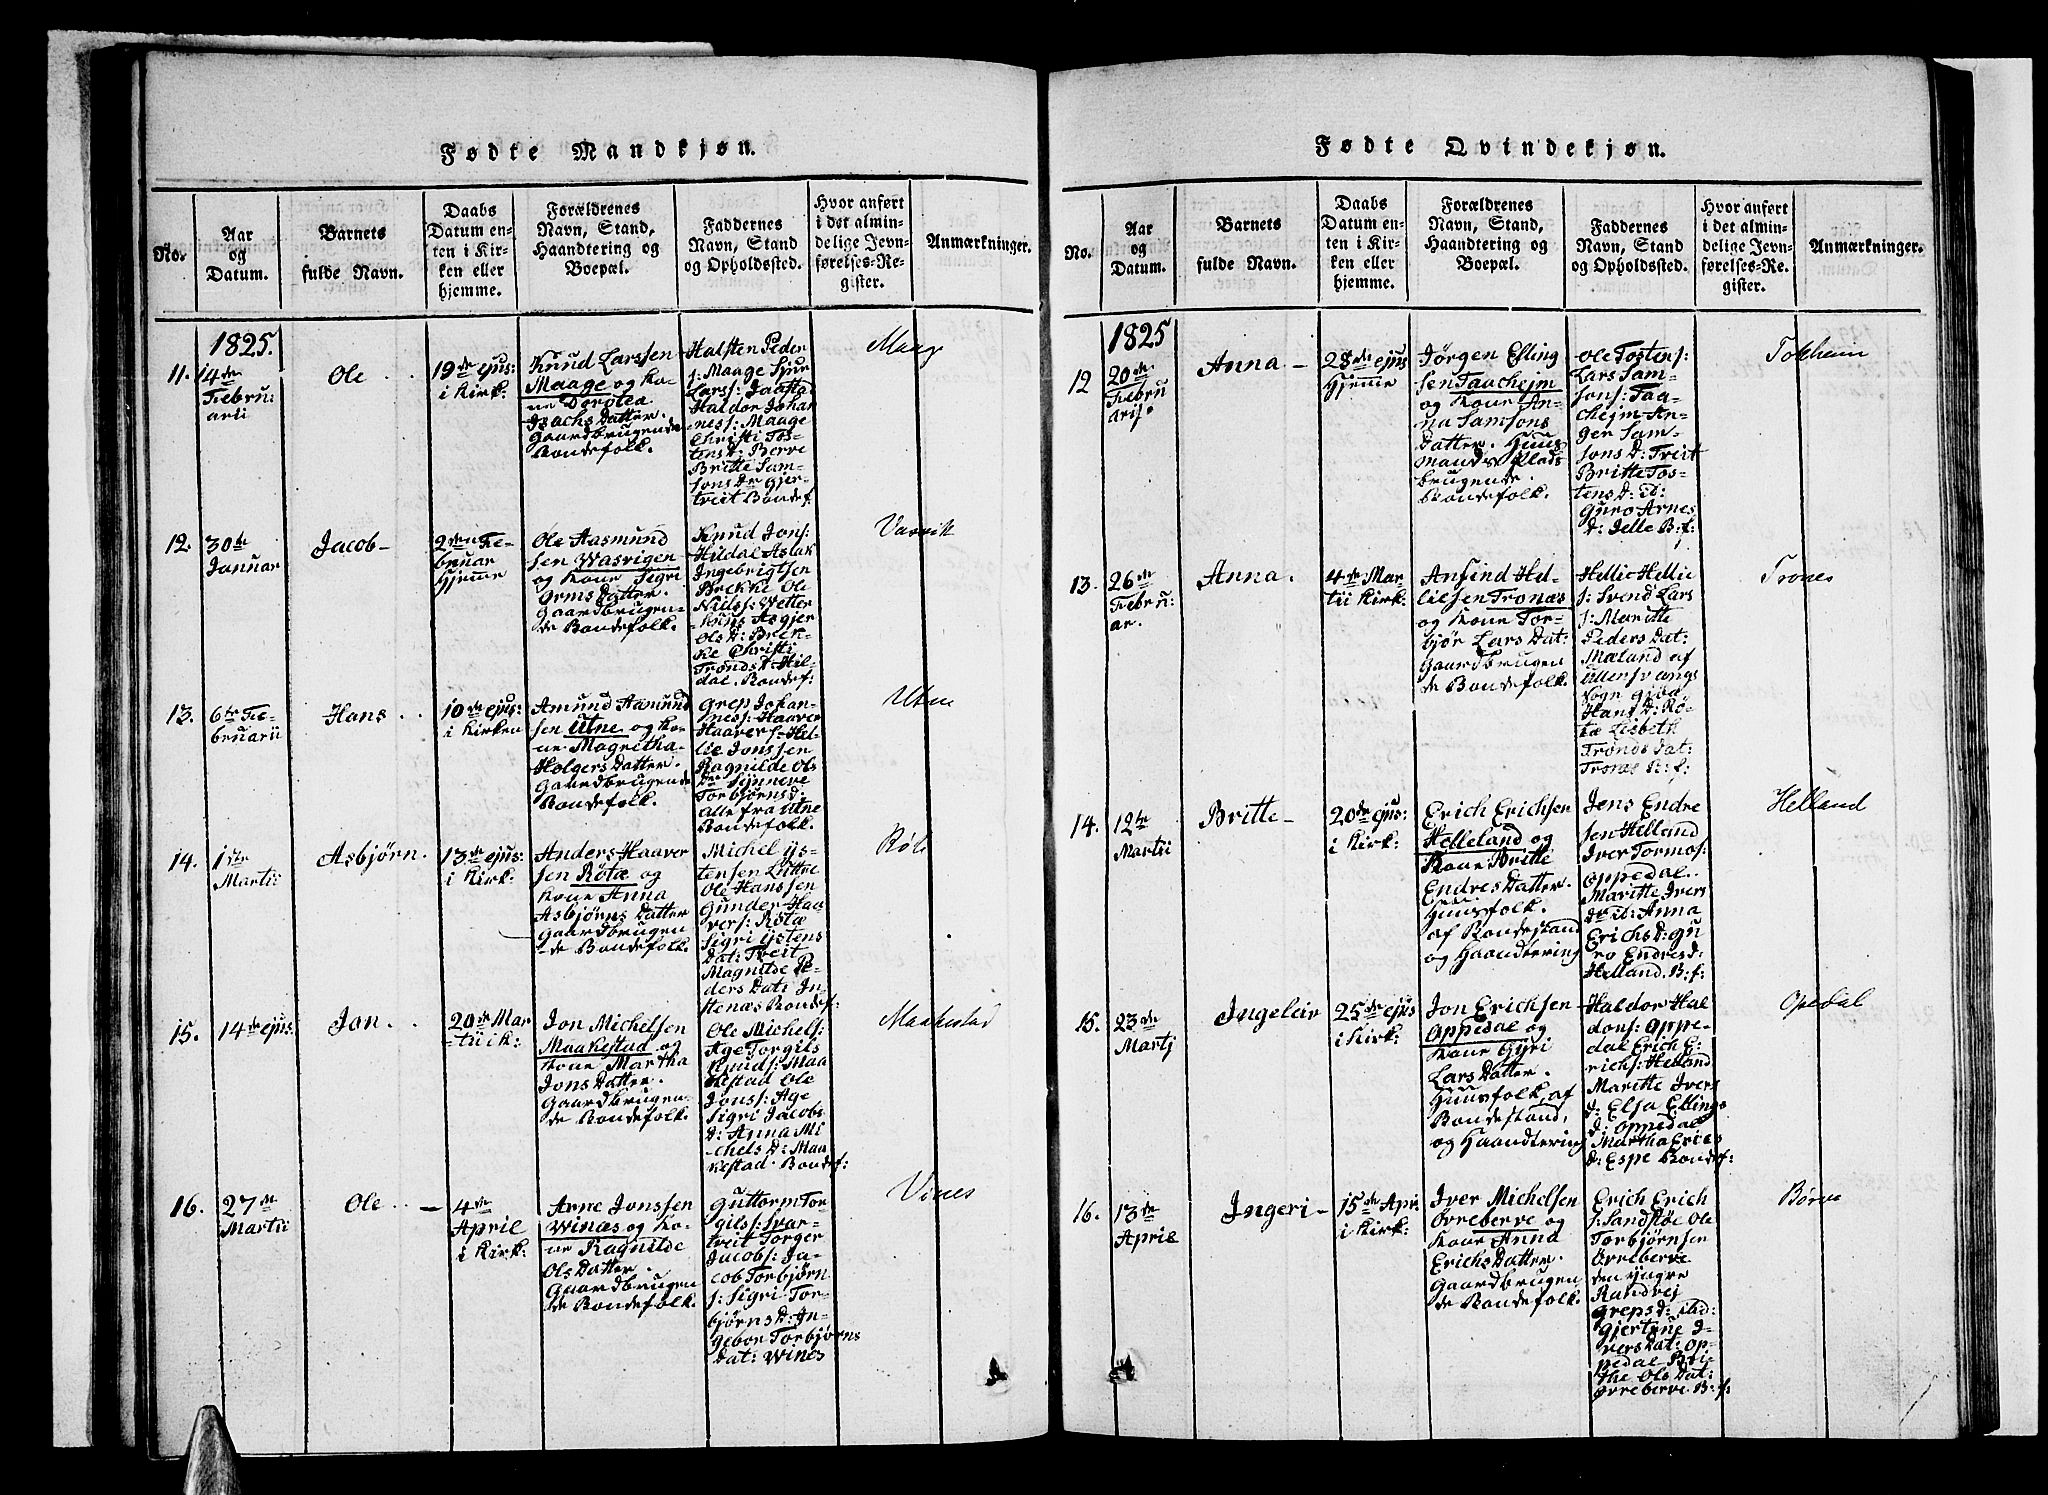 Fødte Mandkjøn.
No.
Aar
og
Datum.
Barnets
fulde Navn.
Daabs
Datum en-
ten i Kir-
ken eller
hjemme.
Forældrenes
Navn, Stand,
Haandtering og
Boepæl.
Faddernes
Navn, Stand
og Opholdssted.
Hvor anført
i det almin-
delige Jevn-
førelses-Re-
gister.
Anmærkninger.
1825.
11.
4de
Febru
arii
Ole
19de ejus:
i Kirk:
Knud Larssen
Maage og Ko-
ne Dorotea
Isachs Datter.
Gaardbrugende
Bondefolk.
Halsten Peder
s: Maage Sjur
Larss: Jaastad
Haldor Johan
ness: Maage
Christi Tos-
tens D: Berve
Britte Sam-
sons Dr Gjer-
tveit Bondef.
Maage
12.
30te
Januar
Jacob
2den Fe-
bruar
Hjeme
Ole Aasmund
sen Wasvigen
og Kone Sigri
Orms Datter.
Gaardbrugen-
de Bondefolk.
Knud Jons:
Hildal Aslak
Ingebrigtsen
Brekke Ole
Nielss: Wetter
huus Asgjer
Ols D: Brek-
ke Christi
Tronds D: Hil-
dal. Bondef:
Vasvik
13.
6te Fe-
bruarii
Hans
10de ejus:
i Kirken
Amund Aamund
sen Utne og Ko-
ne Magretha
Holgers Datter.
Gaardbrugende
Bondefolk.
Grep Johan-
ness: Haaver
Haavers: Hel-
lie Jonssen
Ragnilde Ols
Dr Synneve
Torbjørnsd:
alle fra Utne
Bondefolk.
Utne
14.
1ste
Martii
Asbjørn.
13de ejus:
i Kirk:
Anders Haaver
sen Røtæ og
Kone Anna
Asbjørns Datter
Gaardbrugen
de Bondefolk.
Michel Ijs-
tensen Luttre
Ole Hanssen
Gunder Haa
vers: Røtæ
Sigri Ijstens
Dat: Tveit
Magnilde Pe-
ders Dat: In-
stenæs Bondef:
15.
14de ejus:
Jon
20de Mar
tii i k:
Jon Michelsen
Maakestad og
Kone Martha
Jons Datter.
Gaardbrugen-
de Bondefolk.
Ole Michels:
Age Torgils
Knuds: Maa
kestad Ole
Jonss: Age
Sigri Jacobs
D: Anna Mi
chels D: Maa
kestad. Bondef:
Maakestad
16.
27de
Martii
Ole
4de
April
i Kirk:
Arne Jonssen
Winæs og Ko-
ne Ragnilde
Ols Datter.
Gaardbrugen
de Bondefolk.
Guttorm Tor-
gilss: Svar-
tveit Torger
Jacobs: Ja-
cob Torbjørn
s: Sigri Tor-
bjørns D: In-
gebor Torbjørns
Dat: Wines
Vines
Fødte Qvindekjøn.
No.
Aar
og
Datum.
Barnets
fulde Navn.
Daabs
Datum en-
ten i Kir-
ken eller
hjemme.
Forældrenes
Navn, Stand,
Haandtering og
Boepæl.
Faddernes
Navn, Stand
og Opholdssted.
Hvor anført
i det almin-
delige Jevn-
førelses-Re-
gister.
Anmærkninger.
1825
12
20de
Febru
aris.
Anna
23de ejus
Hjeme
Jørgen Elling
sen Taachejm
og Kone An-
na Samsons
Datter. Huus
mands Plads
brugende.
Bondefolk.
Ole Tostens:
Lars Sam-
sons: Taa-
chejm An-
ger Sam-
sons D: Treit
Britte Tos-
tens D: id:
Guro Arnes
D: Jelle B: f:
Tokheim
13.
26de
Febru:
ar.
Anna.
4de Mar-
tii Kirk:
Ansind Hel-
liesen Tronæs
og Kone Tor-
bjør Lars Dat:
Gaardbrugen
de Bondefolk.
Hellie Hellie
s: Svend Lars
s: Maritte
Peders Dat:
Mæland af
Ullensvangs
Sogn Gjøa
Hans D: Rø-
tæ Lisbeth
Tronds Dat:
Tronæs B: f:
Trones
14.
12te
Martii
Britte
20de ejus:
i Kirk:
Erich Erichsen
Helleland og
Kone Britte
Endres Datter.
Huusfolk.
af Bondestand
og Haandtering
Jens Endre
sen Helland
Iver Tormos:
Oppedal.
Maritte Ivers
Dr id: Anna
Erichs D: Gu
ro Endres d:
Helland. B: f:
Helland
15.
23de
Martj
Ingeleiv
25de ejus
i Kirk:
Jon Erichsen
Oppedal og
Kone Gyri
Lars Datter.
Huusfolk, af
Bondestand,
og Haandtering
Haldor Hal
dons: Oppe-
dal Erich E-
richs: Helland
Maritte Ivers
D: Elsa Ellings
d: Oppedal
Martha Erics
d: Espe Bondef:
Opedal
16.
13te
April
Ingeri
15de Apr:
i Kirk:
Iver Michelsen
Øvreberve og
Kone Anna
Erichs Datter.
Gaardbrugen
de Bondefolk.
Erich Erich
s: Sandstøe Ole
Torbjørnsen
Øvreberve
den yngre
Randvej
Greps D: ibid:
Gjertrue I-
vers Dat: Op-
pedal Bri-
the Ols Dat:
Øvreberve B: f:
Børve